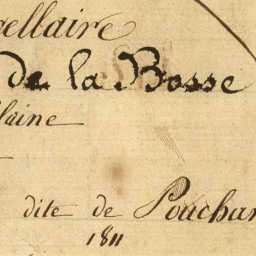 gellaire
de la Bosse
laine
dite de Pouchar
1811